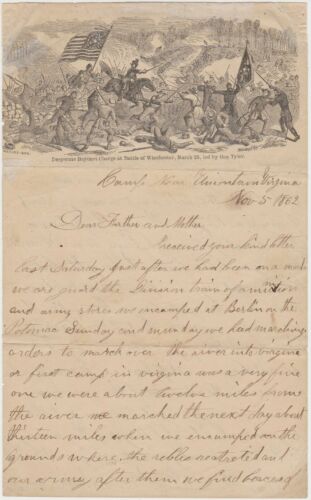 Desperate Bayonet Charge at Battle of Winchester, March 23, led by Gen Tyler.
Camp Virginia
Nov 5 1862
Dear Father and Mother
I received your kind letter
last Saturday just after we had been on a march
we are guard the Division train of
and army stores we encamped at Berlin on the
Potomac Sunday and munday we had marching
orders to march over the river into virginia
or first camp in virginia was a very fine
one we were about twelve miles from
the river we marched the next day about
thirteen miles when we encamped on the
grounds where the rebles
our army after them we find